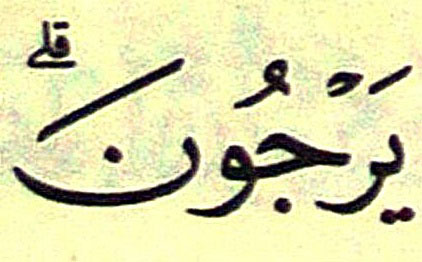 يَرْجُونَ ۗ